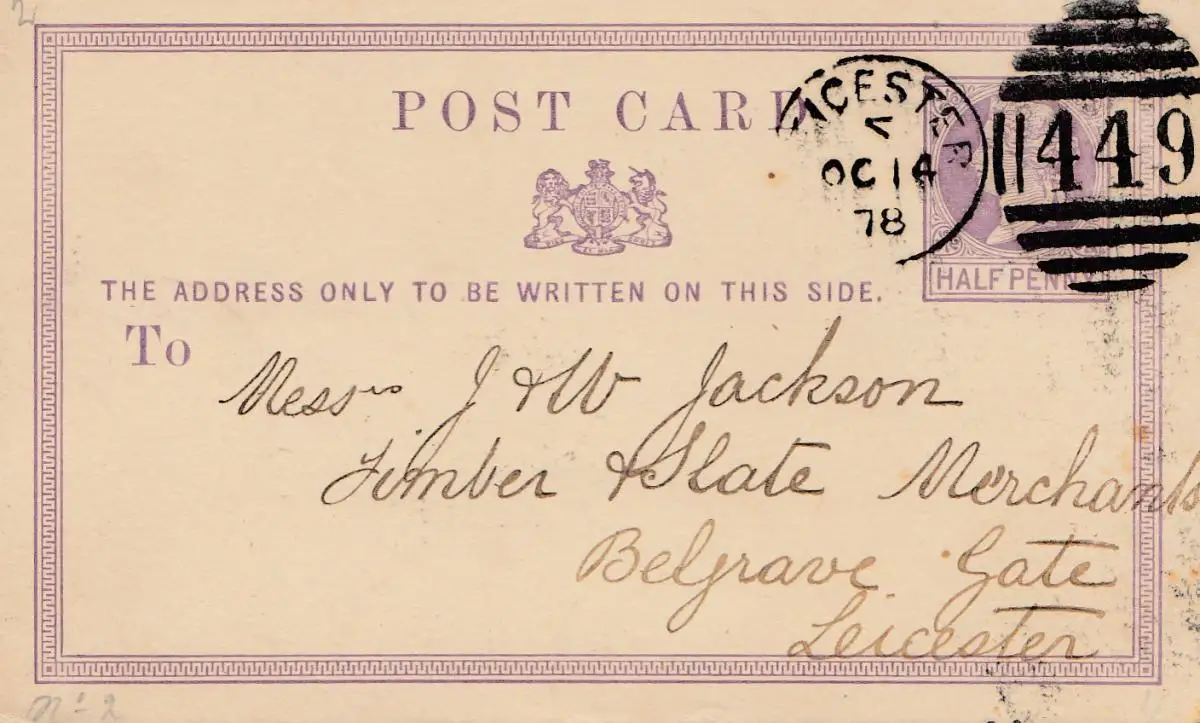 2
POST CARD
LEICESTER
OC 14
78
449
HALFPENNY
THE ADDRESS ONLY TO BE WRITTEN ON THIS SIDE.
To
Messrs J & W Jackson
Timber & Slate Merchants
Belgrave Gate
Leicester
No 2